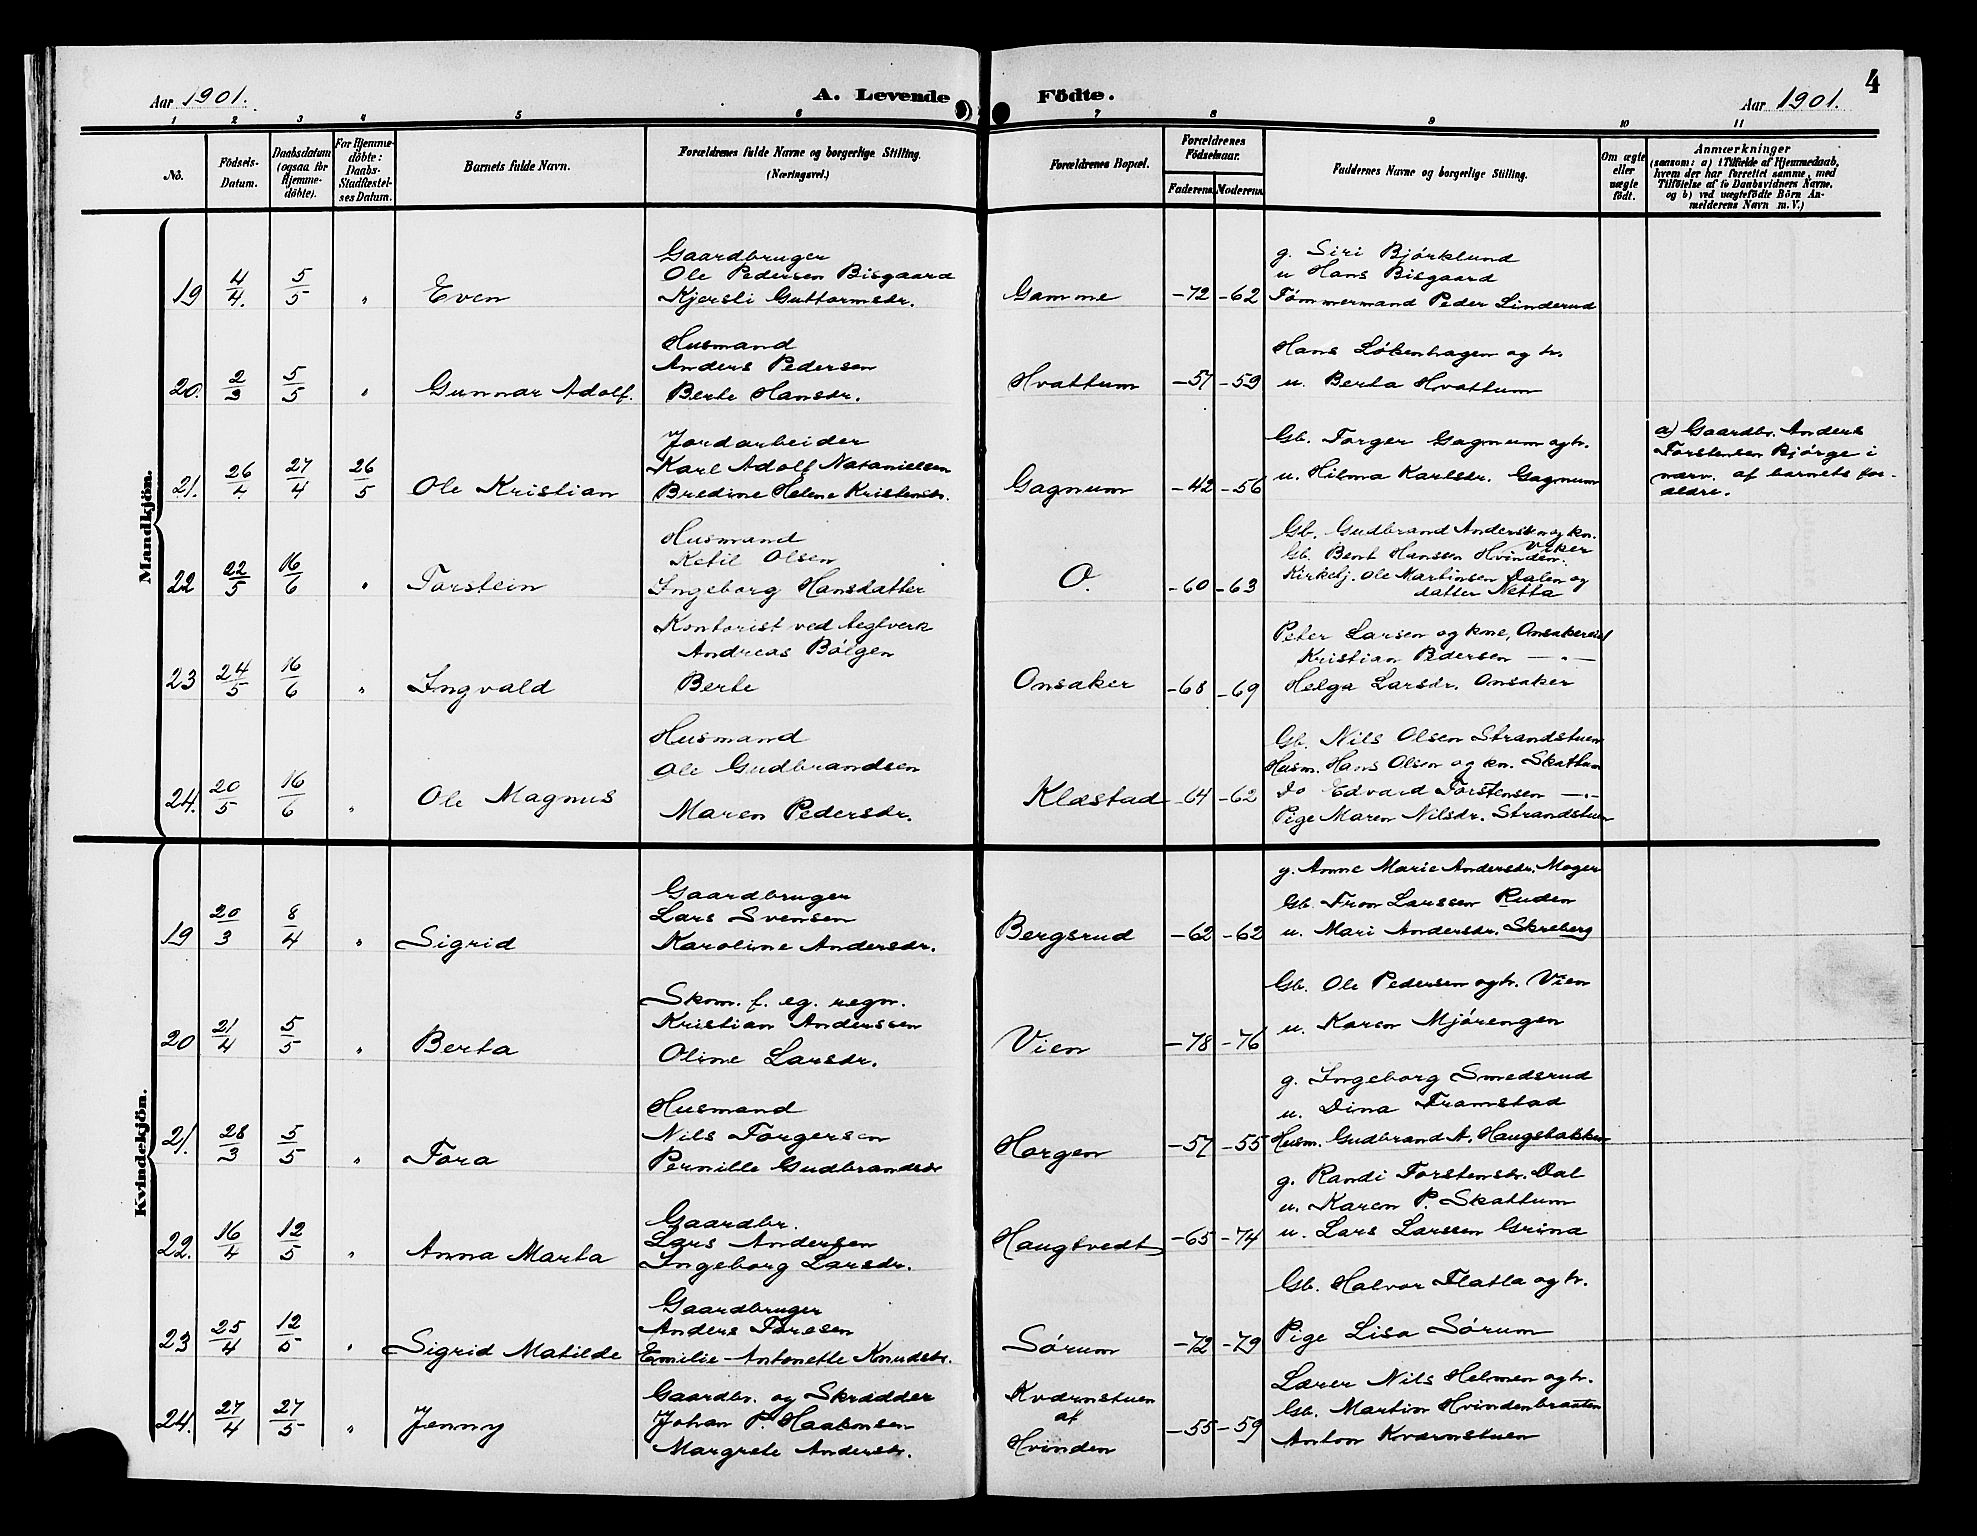 4
Aar 1901.
A. Levende Födte.
Aar 1901.
1 2 3 4 5 6 7 8 9 10 11
No.
Födsels-Datum.
Daabsdatum (ogsaa for Hjemme-döbte).
For Hjemme-döbte: Daabs-Stadfæstel-ses Datum.
Barnets fulde Navn.
Forældrenes fulde Navne og borgerlige Stilling.
(Næringsvei.)
Forældrenes Bopæl.
Forældrenes Födselsaar.
Faderens. Moderens.
Faddernes Navne og borgerlige Stilling.
Om ægte eller uægte födt.
Anmærkninger
(saasom: a) i Tilfælde af Hjemmedaab,
hvem der har forrettet samme, med
Tilföielse af to Daabsvidners Navne.
og b) ved uægtefödte Börn An-
melderens Navn m. V.)
Mandkjön.
19 4/4. 5/5 " Even
Gaardbruger
Ole Pedersen Bisgaard
Kjersti Guttormsdr.
Gamme -72 -62
g. Siri Bjørklund
u Hans Bisgaard
Tømmermand Peder Linderud
20. 2/3 5/5 " Gunnar Adolf.
Husmand
Anders Pedersen
Berte Hansdr.
Hvattum -57 -59
Hans Løkenhagen og hr.
u. Berta Hvattum
21. 26/4 27/4 26/5 Ole Kristian
Jordarbeider
Karl Adolf Natanielsen
Bredine Helene Kristensdr.
Gagnum -42 -56
Gb. Torger Gagnum og hr.
u. Hilma Karlsdr. Gagnum
a) Gaardbr. Anders
Torstensen Bjørge i
nærv. af barnets for-
ældre.
22 22/5 16/6 " Torstein
Husmand
Ketil Olsen
Ingeborg Hansdatter
O. -60 -63
Gb. Gudbrand Andersen og kn.
Viker
Gb. Bent Hansen Hvinden.
Kirketj. Ole Martinsen Dalen og
datter Netta
23 24/5 16/6 " Ingvald
Kontorist ved teglverk
Andreas Bølgen
Berte
Onsaker -68 -69
Peter Larsen og kone, Onsakereiet
Kristian Pedersen — " —
Helga Larsdr. Onsaker
24. 20/5 16/6 " Ole Magnus
Husmand
Ole Gudbrandsen
Maren Pedersdr.
Klæstad -64 -62
Gb. Nils Olsen Strandstuen
Husm. Hans Olsen og kn. Skattum
Do Edvard Torstensen — " —
Pige Maren Nilsdr. Strandstuen
Kvindekjön.
19 20/3 8/4 " Sigrid
Gaardbruger
Lars Svensen
Karoline Andersdr.
Bergsrud -62 -62
g. Anne Marie Andersdr. Moger
Gb. Tron Larssen Ruden
u. Mari Andersdr. Skreberg
20 21/4 5/5 " Berta
Skom. f. eg. regn.
Kristian Anderssen
Oline Larsdr.
Vien -78 -76
Gb. Ole Pedersen og hr. Vien
u. Karen Mjørengen
21. 28/3 5/5 " Tora
Husmand
Nils Torgersen
Pernille Gudbrandsdr
Horgen -57 -55
g. Ingeborg Smedsrud
u. Dina Framstad
Husm. Gudbrand A. Haugsbakken
22. 16/4 12/5 " Anna Marta
Gaardbr.
Lars Andersen
Ingeborg Larsdr.
Haugtvedt -65 -74
g. Randi Torstensdr. Dal
u. Karen P. Skattum
u. Lars Larssen Grina
23 25/4 12/5 " Sigrid Matilde
Gaardbruger
Anders Toresen
Emilie-Antonette Knudsdr.
Sørum -72 -79
Gb. Halvor Flatla og hr.
Pige Lisa Sørum
24. 27/4 27/5 " Jenny
Gaardbr. og Skrædder
Johan P. Haakonsen
Margrete Andersdr.
Kværnstuen
af
Hvinden -55 -59
Lærer Nils Helmen og hr.
Gb. Martin Hvindenbraaten
Anton Kværnstuen